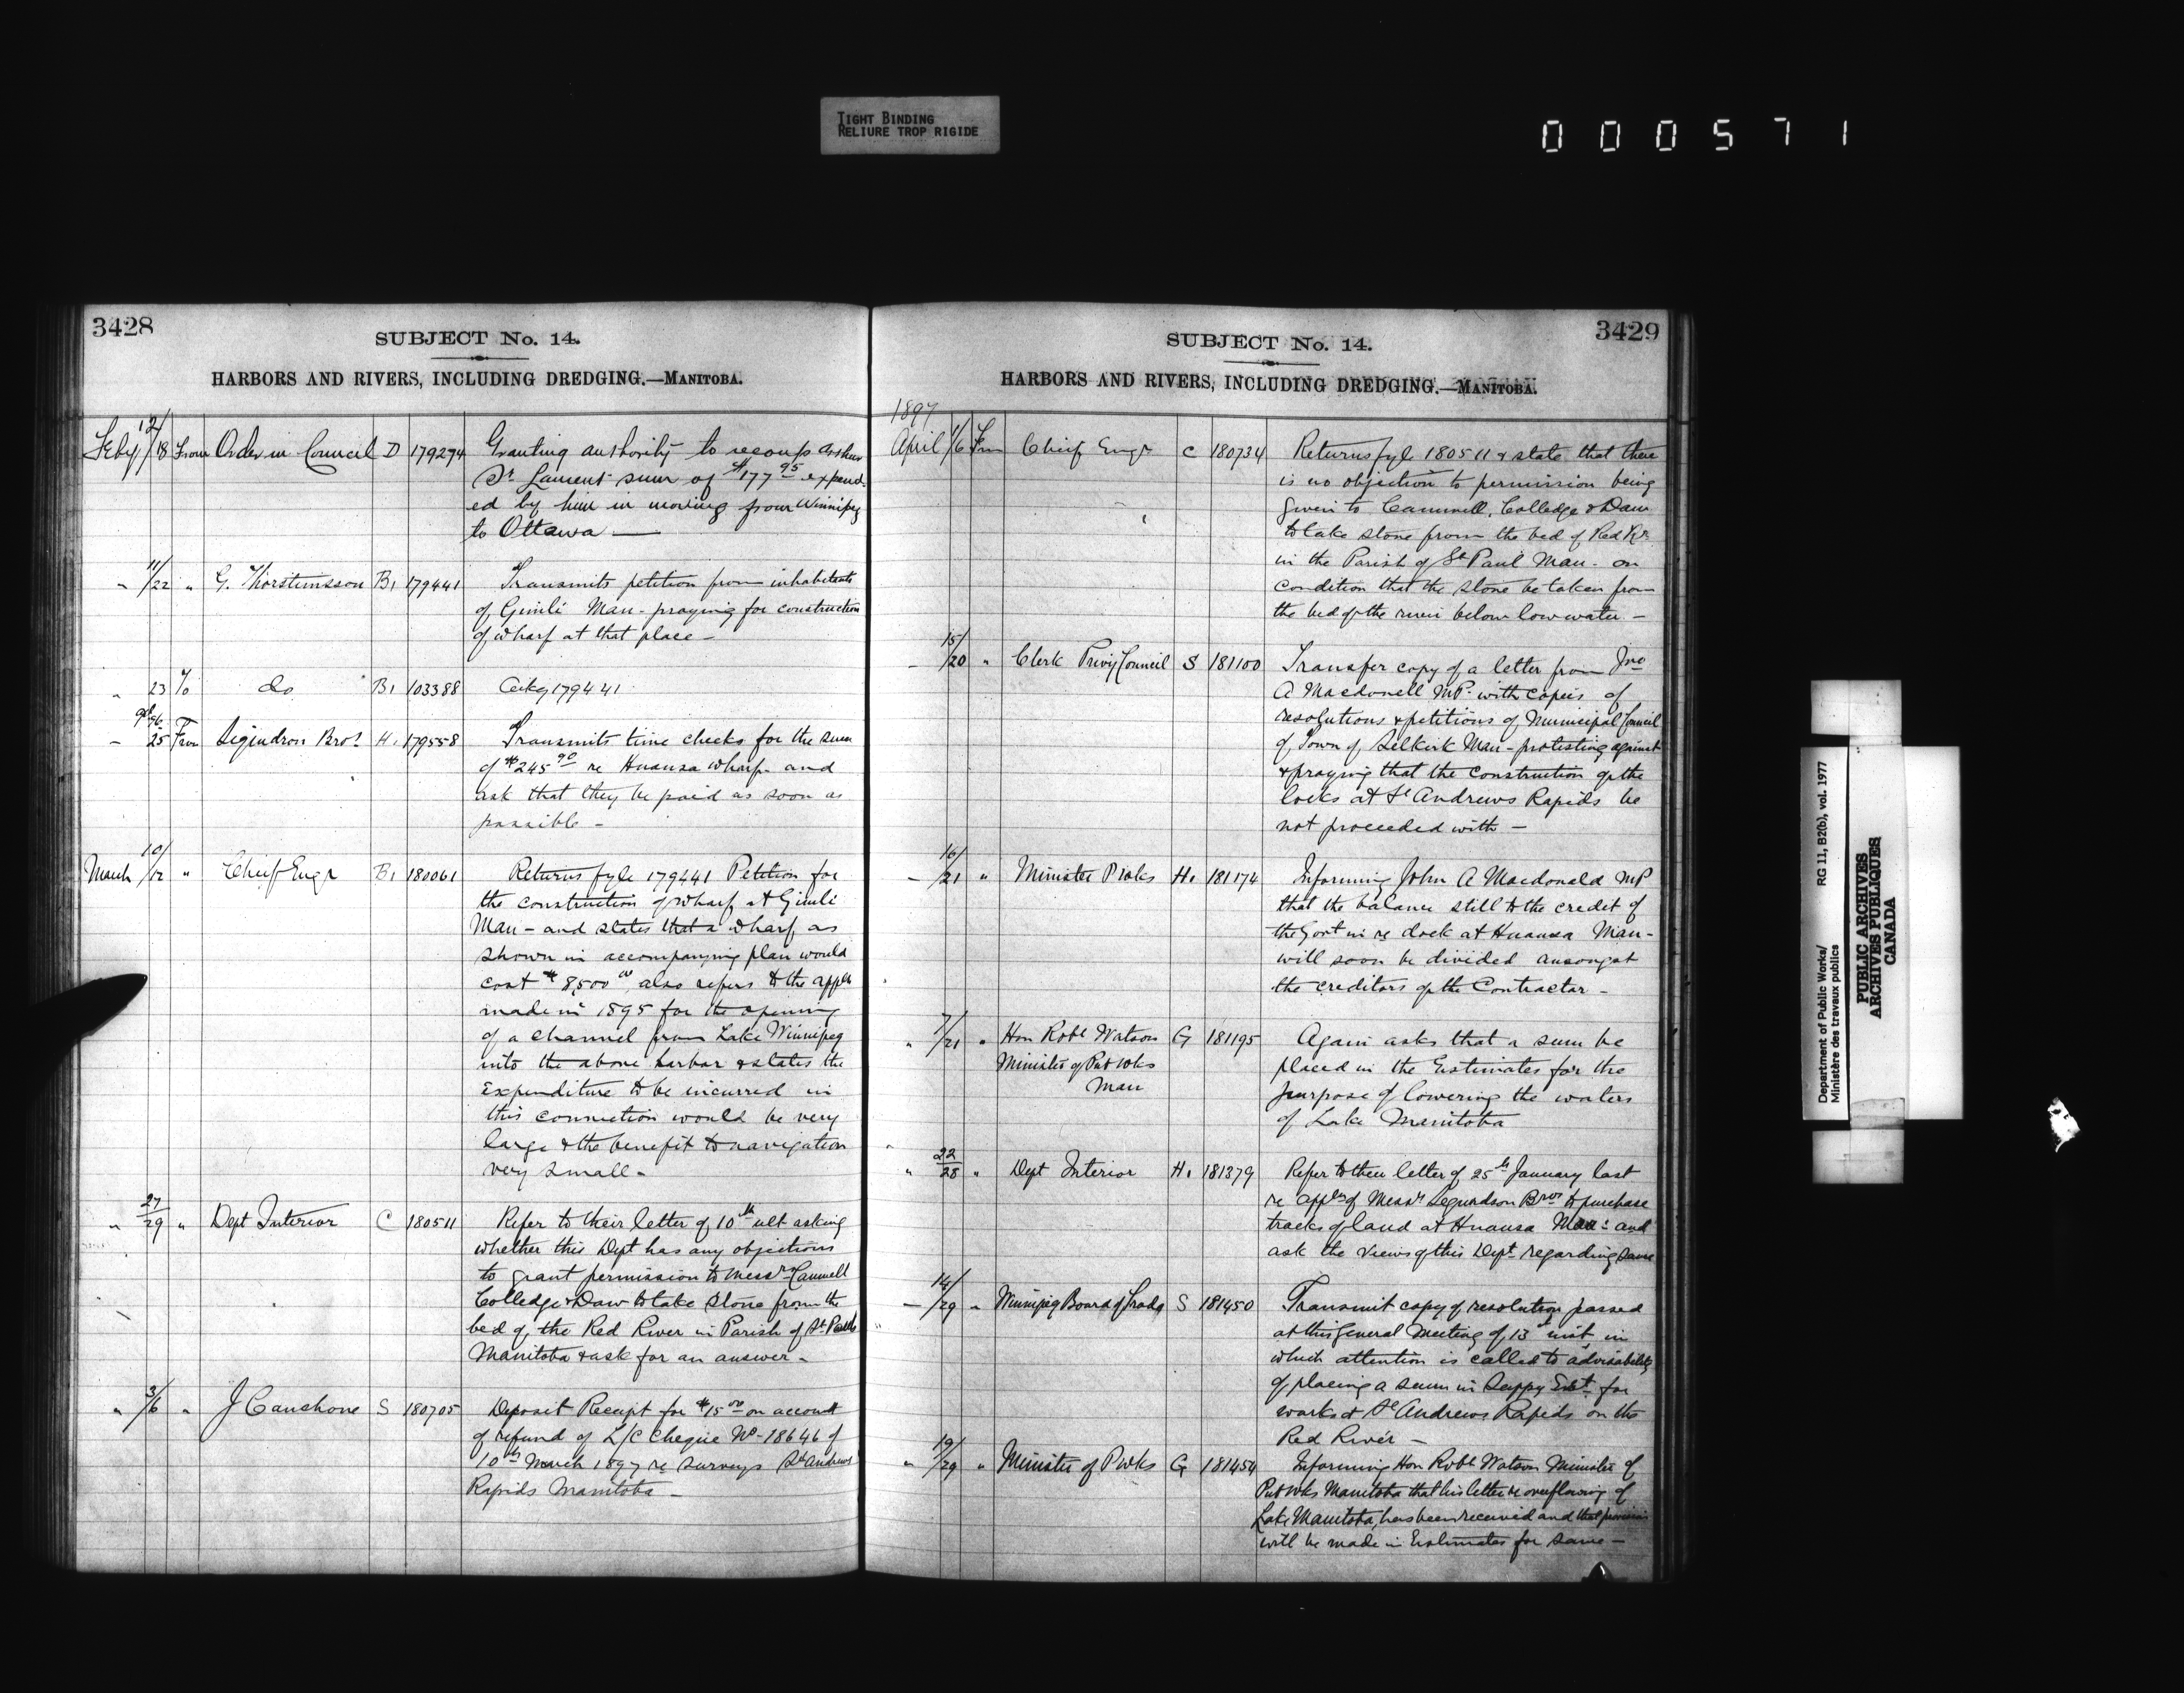 TIGHT BINDING
RELIURE TROP RIGIDE
000571
3428
SUBJECT No. 14.
HARBORS AND RIVERS, INCLUDING DREDGING.—MANITOBA.
Feby 12/18 From Order in Council D 179274 Granting authority to recoup Arthur
St Laurent sum of $177 95 expend-
ed by him in moving from Winnipeg
to Ottawa —
" 11/22 " G. Thorsteinsson B1 179441 Transmits petition from inhabitants
of Gimli Man - praying for construction
of wharf at that place -
" 23 To do B1 103388 Ackg 179441
- 25 From Bros H1 179558 Transmits time checks for the sum
of $245 90 re Hnausa wharf - and
ask that they be paid as soon as
possible -
March 10/12 " Chief Engr B1 180061 Returns fyle 179441 Petition for
the construction of wharf at Gimli
Man - and states that a wharf as
shown in accompanying plan would
cost $8,500 00 also refers to the appln
made in 1895 for the opening
of a channel from Lake Winnipeg
into the above harbor & states the
expenditure to be incurred in
this connection would be very
large & the benefit to navigation
very small -
" 27/29 " Dept Interior C 180511 Refer to their letter of 10th ult asking
whether this Dept has any objections
to grant permission to Messrs Cammell
Colledge & Daw to take stone from the
bed of the Red River in Parish of St Pauls
Manitoba & ask for an answer -
" 3/6 " J Cauchone S 180705 Deposit Receipt for $15 00 on account
of refund of L/C Cheque No - 18646 of
10th March 1897 re surveys St Andrews
Rapids Manitoba -
3429
SUBJECT No. 14.
HARBORS AND RIVERS, INCLUDING DREDGING.—MANITOBA.
1897
April 1/6 From Chief Engr C 180734 Returns fyle 180511 & state that there
is no objection to permission being
given to Cammell, Colledge & Daw
to take stone from the bed of Red Rr
in the Parish of St Paul Man - on
condition that the stone be taken from
the bed of the river below low water -
- 15/20 " Clerk Privy Council S 181100 Transfer copy of a letter from Jno
A Macdonell MP - with copies of
resolutions & petitions of Municipal Council
of Town of Selkirk Man - protesting against
& praying that the construction of the
locks at St Andrews Rapids be
not proceeded with -
- 16/21 " Minister P Wks H1 181174 Informing John A Macdonald MP
that the balance still to the credit of
the Govt in re dock at Hnausa Man -
will soon be divided amongst
the creditors of the Contractor -
" 7/21 " Hon Robt Watson G 181195 Again asks that a sum be
Minister of Pub Wks placed in the Estimates for the
Man purpose of lowering the waters
of Lake Manitoba
" 22/28 " Dept Interior H1 181379 Refer to their letter of 25th January last
re appln of Messrs Bros to purchase
tracks of land at Hnausa Man - and
ask the views of this Dept regarding same
- 14/29 " Winnipeg Board of Trade S 181450 Transmit copy of resolution passed
at this General Meeting of 13th inst in
which attention is called to advisability
of placing a sum in Suppy Est for
works at St Andrews Rapids on the
Red River -
" 19/29 " Minister of P Wks G 181454 Informing Hon Robt Watson Minister of
Pub Wks Manitoba that his letter re overflowing of
Lake Manitoba, has been received and that provision
will be made in Estimates for same -
Department of Public Works/
Ministère des travaux publics
RG 11, B2(b), vol. 1977
PUBLIC ARCHIVES
ARCHIVES PUBLIQUES
CANADA